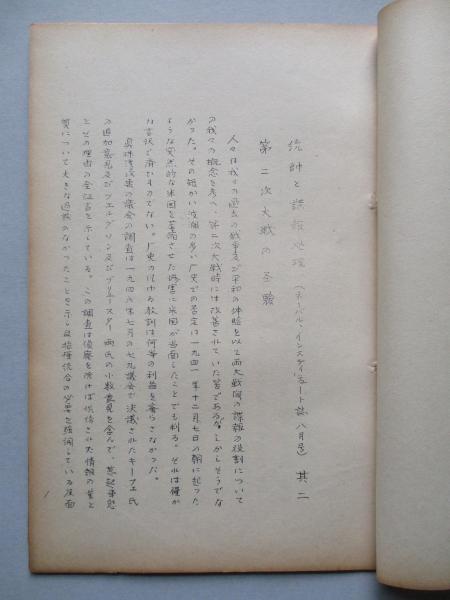 統帥と諜報処理（ネーバル・インスティチュート誌八月号）其二
第二次大戦の経験
人々は我々の過去の戦争及び平和の体験を以て両大戦間の諜報の役割について
の我々の概念を考へ、第二次大戦時には改善されていた筈であるが、しかしそうでな
かった。その短かい波瀾の多い歴史での否定は一九四一年十二月七日の朝に起った
ような突然的な米国を茫然させた侮害に米国が当面したことでも判る。それは僅か
な言訳で済むものでない。歴史のいはゆる教訓は何等の利益を齎らさなかった。
真珠湾攻撃の議会の調査は一九四六年七月の七九議会で決議されたキーフェ氏
の追加意見及びフェルグソン及びブリュースター両氏の小数意見を含んで、
とその理由の全証言を示している。この調査は偏慶を除けば供給された情報の量と
質について大きな過誤のなかったことを示し且指揮統合の必要を強調している反面